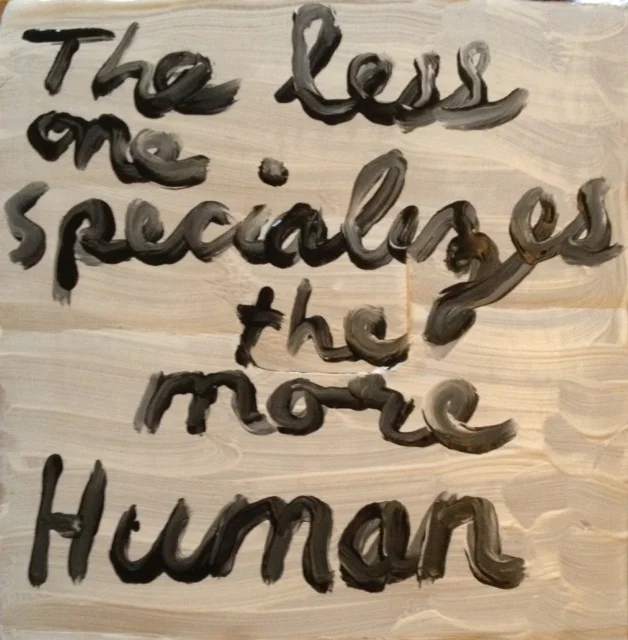 The less
one
specializes
the
more
Human